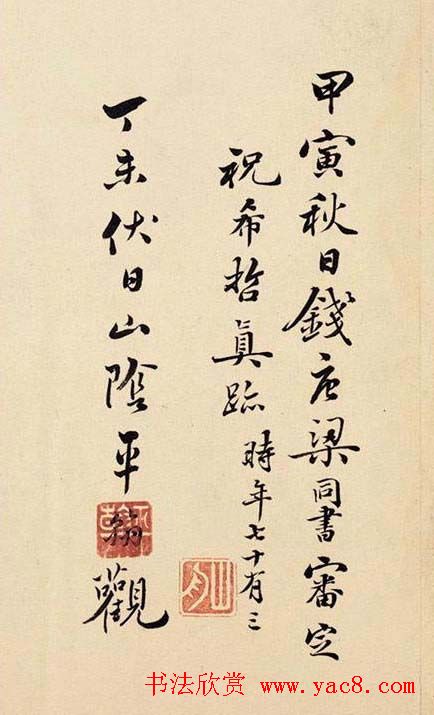 甲寅秋日錢唐梁同書審定
祝希哲眞跡時年七十有三
山舟
丁未伏日山陰平翰觀
书法欣赏 www.yac8.com